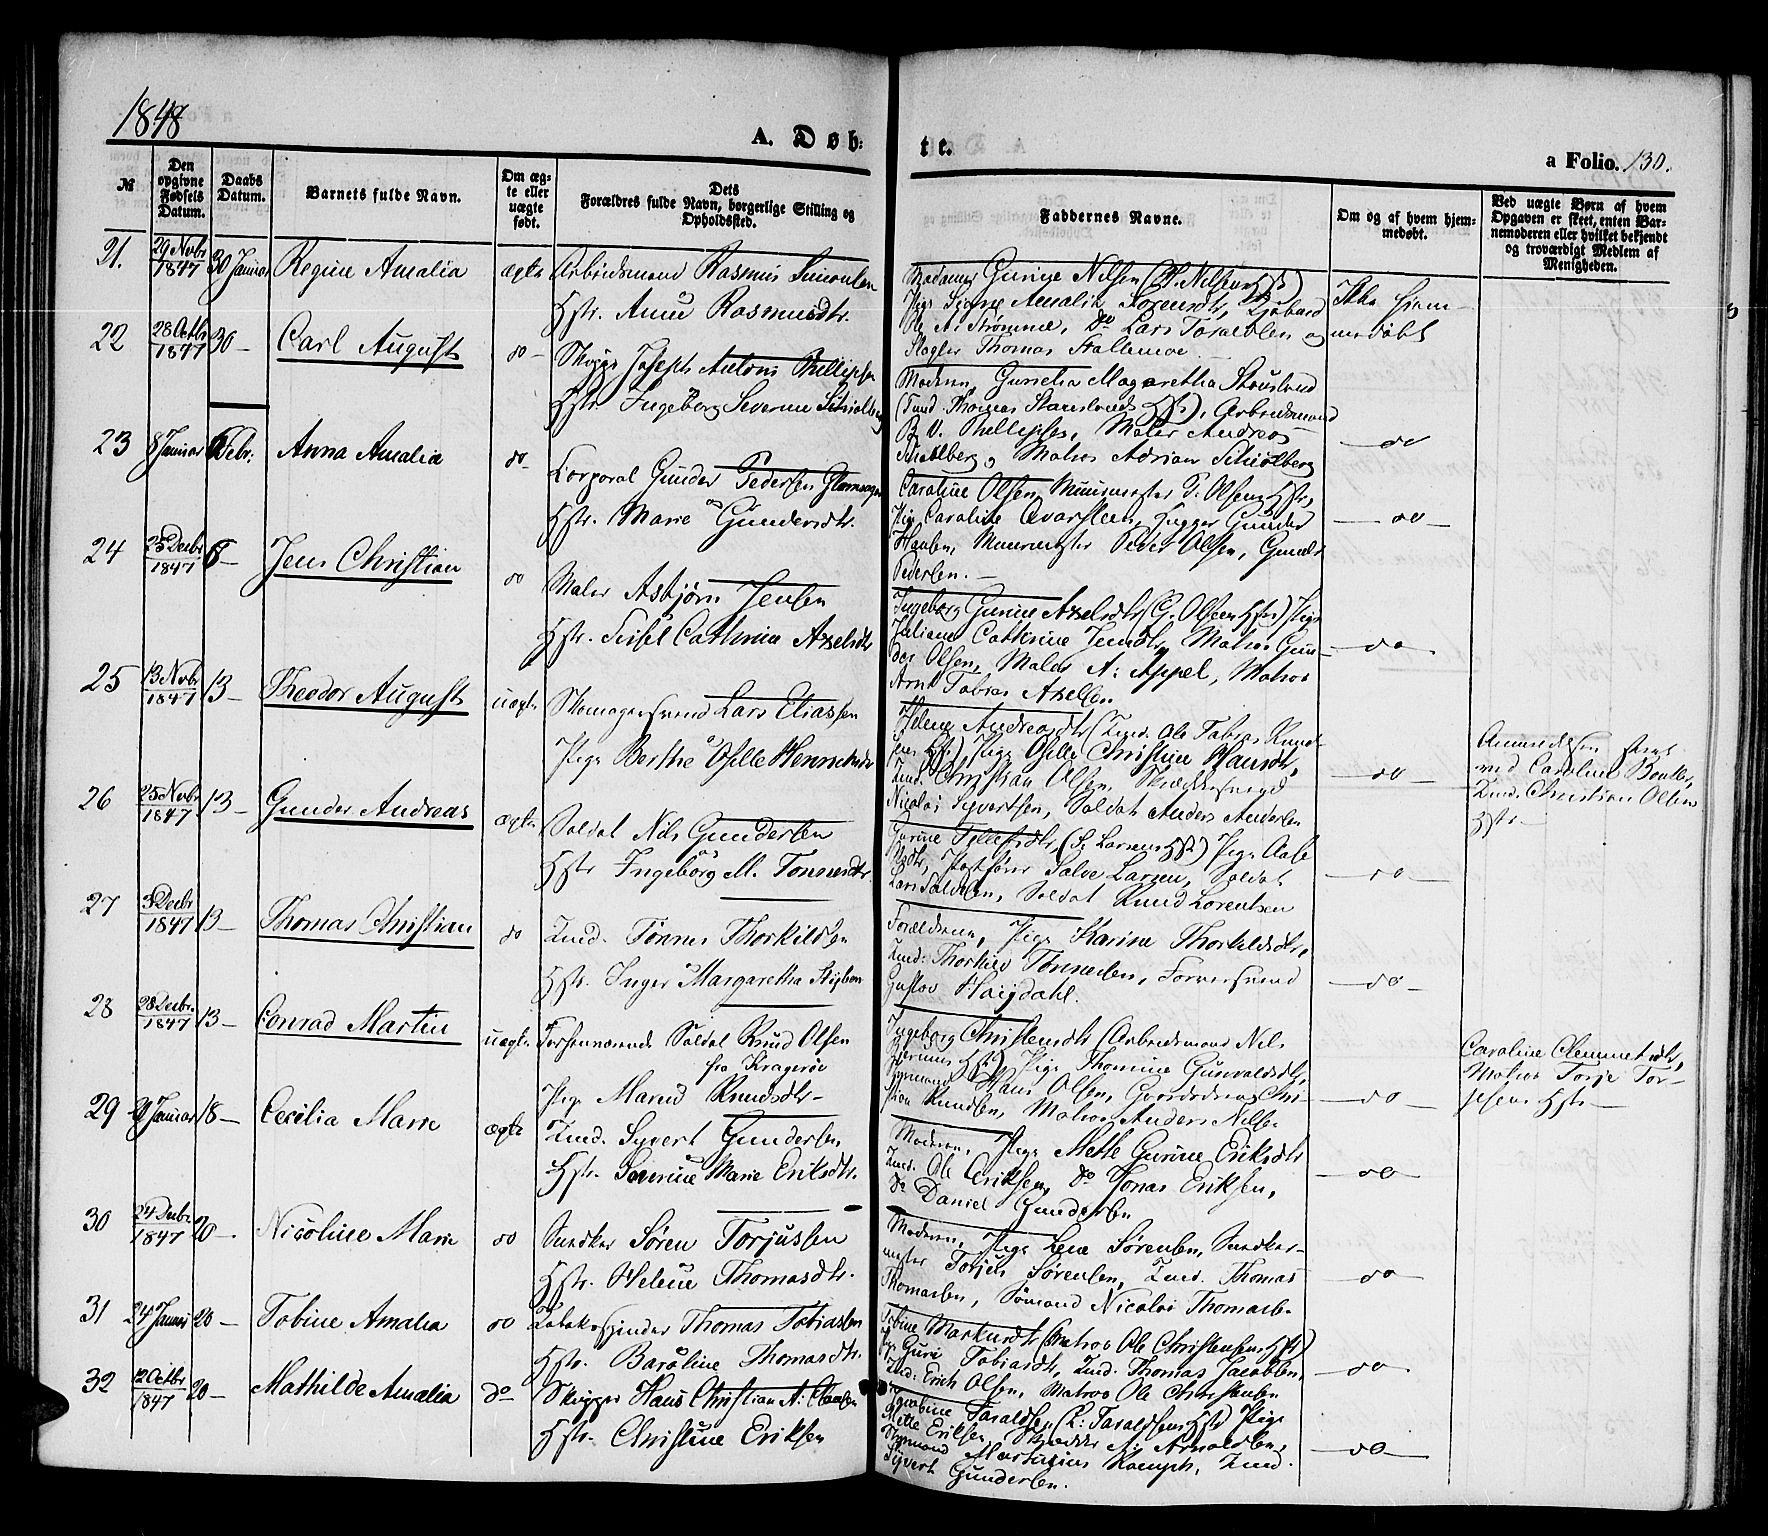 1848
A. Døb-
te.
a Folio. 130.
№
Den
opgivne
Fødsels
Datum.
Daabs
Datum.
Barnets fulde Navn.
Om æg-
te eller
uægte
født.
Dets
Forældres fulde Navn, borgerlige Stilling og
Opholdssted.
Faddernes Navne.
Om og af hvem hjem-
medøbt.
Ved uægte Børn af hvem
Opgaven er skeet, enten Bar-
nemoderen eller hvilket bekjendt
og troværdigt Medlem af
Menigheden.
21. 29 Novbr 1847 30 Januar Regine Amalia ægte Arbeidsmand Rasmus Simonsen
Hstr. Anne Rasmusdtr.
Madame Gurine Nilsen
Pige Signe Amalie Sørensdtr,
Ole A. Strømme, do Lars Taraldsen og
Slagter Thomas Fallemoe
Ikke hjem-
medøbt
22 28 Octbr 1847 30 – Carl August do – Skipp. Joseph Antoni Phillipsen
Hstr. Ingeborg Severine Schiølberg
Moderen, Gunelia Magaretha
Arbeidsmand
B. V. Phillipsen, Maler Andreas
Schiølberg, Matros Adrian Schiølberg
– do
23 8 Januar 6 Febr: Anna Amalia do – Corporal Gunder Pedersen
Hstr. Marie Gundersdtr.
Caroline Olsen, Muurmester P. Olsens Hstr,
Pige Caroline Qvarsteen, Gunder
Hansen, Muurmester Peder Olsen,
Pedersen. –
– do –
24 25 Decbr 1847 6 – Jens Christian do Maler Asbjørn Jensen
Hstr. Sissel Cathrine Axelsdtr
Ingeborg Gurine Axelsdtr (G. Olsens Hstr) Pige
Juliane Cathrine Jensdtr, Matros Gun-
der Olsen, Maler A: Appel, Matros
Arnt Tobias Axelsen
do –
25 13 Novbr 1847 13 – Theodor August uægte Skomagersvend Lars Eliassen
Pige Berthe Oselle
Helene Andreasdtr (Ind. Ole Tobias Knud-
sens Hstr) Pige Oselle Christine Hansdtr,
Ind. Christian Olsen,
Nicolai Syvertsen, Soldat Anders Andersen
do –
ved Caroline
Ind. Christian Olsens
Hstr –
26 25 Novbr 1847 13 – Gunder Andreas ægte Soldat Nils Gundersen
Hstr Ingeborg M. Tønnesdtr.
Gurine Tellefsdtr, (S. Larsens Hstr) Pige Aase
Salve Larsen, Soldat
Soldat Knud Lorentsen
– do –
27 3 Decbr 1847 13 – Thomas Christian do Ind. Tønnes Thorkildsen
Hstr. Inger Margaretha
Forældrene, Pige Karine Thorkildsdtr,
Ind. Thorkild Tønnesen, Farversvend
Gustav Høigdahl.
– do –
28 28 Decbr. 1847 13 – Conrad Martin uægte Forhenværende Soldat Knud Olsen
fra Kragerøe
Pige Maren Knudsdtr –
Ingeborg Christensdtr (Arbeidsmand Nils
Hstr) Pige Thomine Gunvaldsdtr,
Hans Olsen,
Knudsen, Matros Anders Nilsen
– do –
Caroline Clemmetsdtr,
Matros Torje Tor-
jesens Hstr –
29 Januar 18 – Cecilia Marie ægte Ind. Syvert Gundersen
Hstr. Severine Marie Eriksdtr.
Moderen, Pige Mette Gurine Eriksdtr
Ind. Ole Eriksen, do Jonas Eriksen,
do Daniel Gundersen
– do –
30 24 Decbr 1847 20 –. Nicoline Marie do Snedker Søren Torjussen
Hstr. Helene Thomasdtr.
Moderen, Pige Lene Sørensen, Snedker-
mester Torjus Sørensen, Ind. Thomas
Thomassen, Sømand Nicolai Thomasen
do
31 24 Januar 20 – Tobine Amalia do Tobaksspinder Thomas Tobiassen
Hstr. Baroline Thomasdtr.
Tobine Markusdtr (Matros Ole Christensens Hstr)
Pige Guri Tobiasdtr, Ind. Thomas Jacobsen,
Ind. Erich Olsen, Matros Ole Christensen
– do –
32 12 Octbr 1847 20 – Mathilde Amalia do – Skipper Hans Christian A. Clausen
Hstr. Christine Eriksen
Taraldsen (L: Taraldsens Hstr) Pige
Mette Eriksen, A: Arnoldsen,
Martinius Kaempf, Ind.
Syvert Gundersen.
– do –